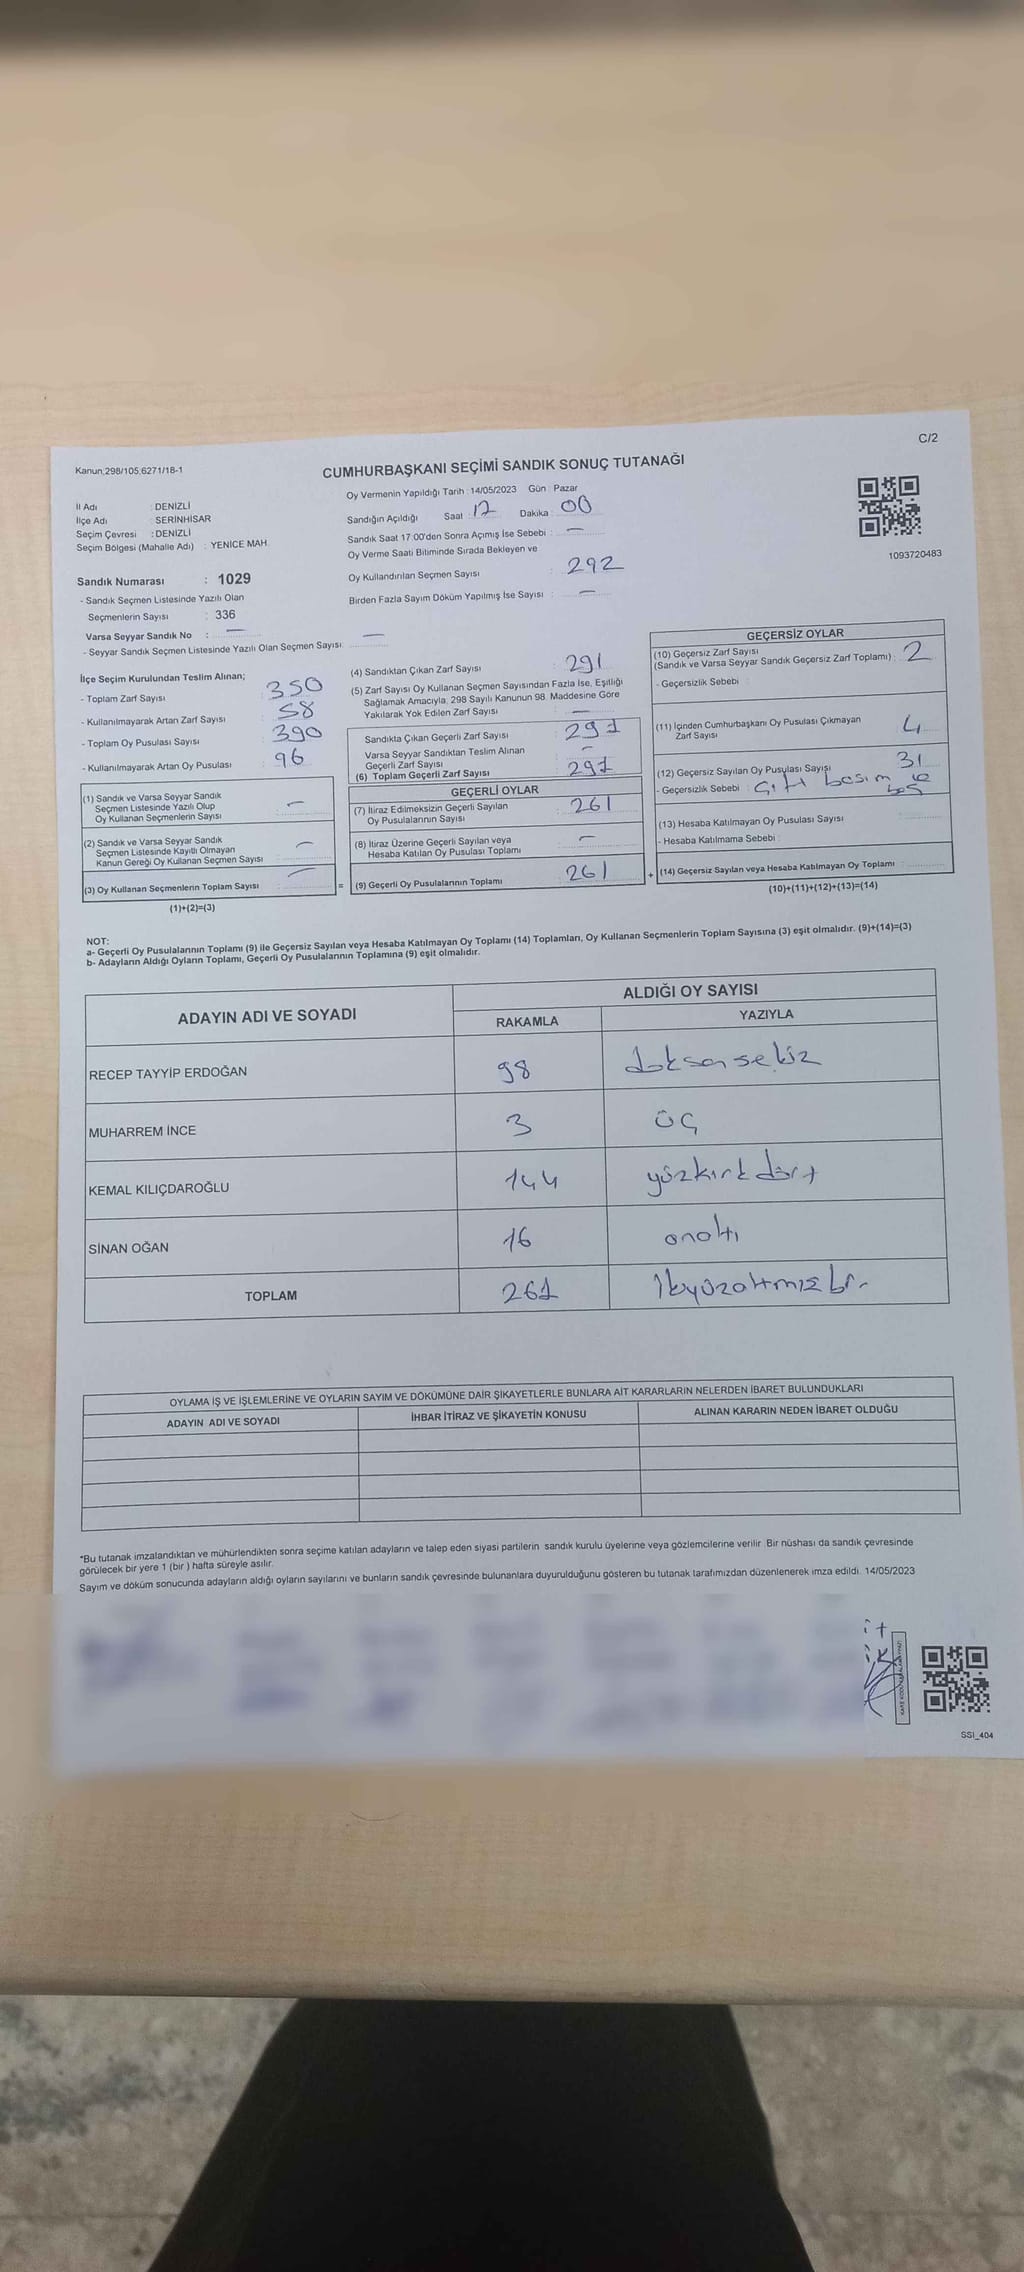 C/2
Kanun.298/105,6271/18-1
CUMHURBAŞKANI SEÇİMİ SANDIK SONUÇ TUTANAĞI
İl Adı : DENİZLİ
İlçe Adı : SERİNHİSAR
Seçim Çevresi : DENİZLİ
Seçim Bölgesi (Mahalle Adı) : YENİCE MAH.
Oy Vermenin Yapıldığı Tarih : 14/05/2023 Gün : Pazar
Sandığın Açıldığı Saat : 17 Dakika : 00
Sandık Saat 17:00'den Sonra Açımış İse Sebebi : —
Oy Verme Saati Bitiminde Sırada Bekleyen ve
Oy Kullandırılan Seçmen Sayısı : 292
Birden Fazla Sayım Döküm Yapılmış İse Sayısı : —
1093720483
Sandık Numarası : 1029
- Sandık Seçmen Listesinde Yazılı Olan
Seçmenlerin Sayısı : 336
Varsa Seyyar Sandık No : —
- Seyyar Sandık Seçmen Listesinde Yazılı Olan Seçmen Sayısı: —
İlçe Seçim Kurulundan Teslim Alınan;
- Toplam Zarf Sayısı : 350
- Kullanılmayarak Artan Zarf Sayısı : 58
- Toplam Oy Pusulası Sayısı : 390
- Kullanılmayarak Artan Oy Pusulası : 96
(1) Sandık ve Varsa Seyyar Sandık
Seçmen Listesinde Yazılı Olup
Oy Kullanan Seçmenlerin Sayısı : —
(2) Sandık ve Varsa Seyyar Sandık
Seçmen Listesinde Kayıtlı Olmayan
Kanun Gereği Oy Kullanan Seçmen Sayısı : —
(3) Oy Kullanan Seçmenlerin Toplam Sayısı : —
(1)+(2)=(3)
(4) Sandıktan Çıkan Zarf Sayısı : 291
(5) Zarf Sayısı Oy Kullanan Seçmen Sayısından Fazla İse, Eşitliği
Sağlamak Amacıyla, 298 Sayılı Kanunun 98. Maddesine Göre
Yakılarak Yok Edilen Zarf Sayısı : —
Sandıkta Çıkan Geçerli Zarf Sayısı : 291
Varsa Seyyar Sandıktan Teslim Alınan
Geçerli Zarf Sayısı : —
(6) Toplam Geçerli Zarf Sayısı : 291
GEÇERLİ OYLAR
(7) İtiraz Edilmeksizin Geçerli Sayılan
Oy Pusulalarının Sayısı : 261
(8) İtiraz Üzerine Geçerli Sayılan veya
Hesaba Katılan Oy Pusulası Toplamı : —
= (9) Geçerli Oy Pusulalarının Toplamı : 261
GEÇERSİZ OYLAR
(10) Geçersiz Zarf Sayısı
(Sandık ve Varsa Seyyar Sandık Geçersiz Zarf Toplamı) : 2
- Geçersizlik Sebebi :
(11) İçinden Cumhurbaşkanı Oy Pusulası Çıkmayan
Zarf Sayısı : 4
(12) Geçersiz Sayılan Oy Pusulası Sayısı : 31
- Geçersizlik Sebebi : Çift basım ve
boş
(13) Hesaba Katılmayan Oy Pusulası Sayısı :
- Hesaba Katılmama Sebebi :
+ (14) Geçersiz Sayılan veya Hesaba Katılmayan Oy Toplamı :
(10)+(11)+(12)+(13)=(14)
NOT:
a- Geçerli Oy Pusulalarının Toplamı (9) ile Geçersiz Sayılan veya Hesaba Katılmayan Oy Toplamı (14) Toplamları, Oy Kullanan Seçmenlerin Toplam Sayısına (3) eşit olmalıdır. (9)+(14)=(3)
b- Adayların Aldığı Oyların Toplamı, Geçerli Oy Pusulalarının Toplamına (9) eşit olmalıdır.
ADAYIN ADI VE SOYADI
ALDIĞI OY SAYISI
RAKAMLA YAZIYLA
RECEP TAYYİP ERDOĞAN 98 doksansekiz
MUHARREM İNCE 3 üç
KEMAL KILIÇDAROĞLU 144 yüzkırkdört
SİNAN OĞAN 16 onaltı
TOPLAM 261 ikiyüzaltmışbir
OYLAMA İŞ VE İŞLEMLERİNE VE OYLARIN SAYIM VE DÖKÜMÜNE DAİR ŞİKAYETLERLE BUNLARA AİT KARARLARIN NELERDEN İBARET BULUNDUKLARI
ADAYIN ADI VE SOYADI İHBAR İTİRAZ VE ŞİKAYETİN KONUSU ALINAN KARARIN NEDEN İBARET OLDUĞU
*Bu tutanak imzalandıktan ve mühürlendikten sonra seçime katılan adayların ve talep eden siyasi partilerin sandık kurulu üyelerine veya gözlemcilerine verilir. Bir nüshası da sandık çevresinde
görülecek bir yere 1 (bir ) hafta süreyle asılır.
Sayım ve döküm sonucunda adayların aldığı oyların sayılarını ve bunların sandık çevresinde bulunanlara duyurulduğunu gösteren bu tutanak tarafımızdan düzenlenerek imza edildi. 14/05/2023
SSI_404